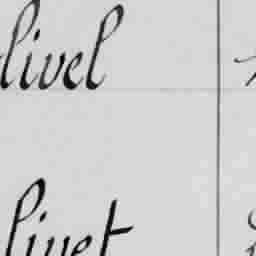 livel
livet